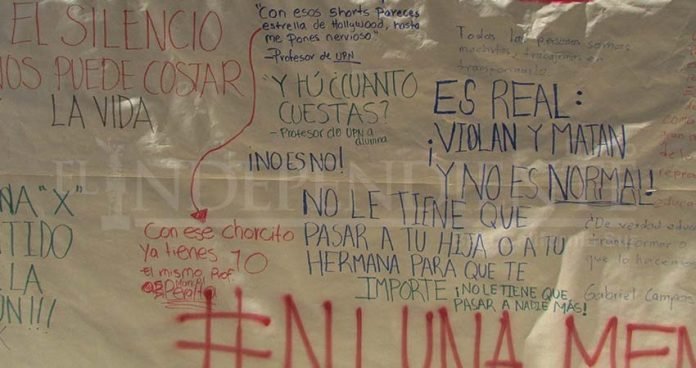 EL SILENCIO
NOS PUEDE COSTAR
LA VIDA
"Con esos shorts Pareces
estrella de Hollywood, hasta
me Pones nervioso."
-Profesor de UPN
"Y TÚ ¿CUANTO
CUESTAS?
- Profesor de UPN a
alumna
¡NO ES NO!
Todas las personas somos
machistas, trabajemos en
ES REAL:
¡VIOLAN Y MATAN
Y NO ES NORMAL!
EL INDEPENDIENTE
NO LE TIENE QUE
PASAR A TU HIJA O A TU
HERMANA PARA QUE TE
IMPORTE
¡NO LE TIENE QUE
PASAR A NADIE MÁS!
Con ese chorcito
Ya tienes 10
el mismo Prof.
NA "X"
TIDO
LA
ÚN!!!
¿De verdad educa
transformar o
que lo hacemos
Gabriel Campos
#NI UNA MEN